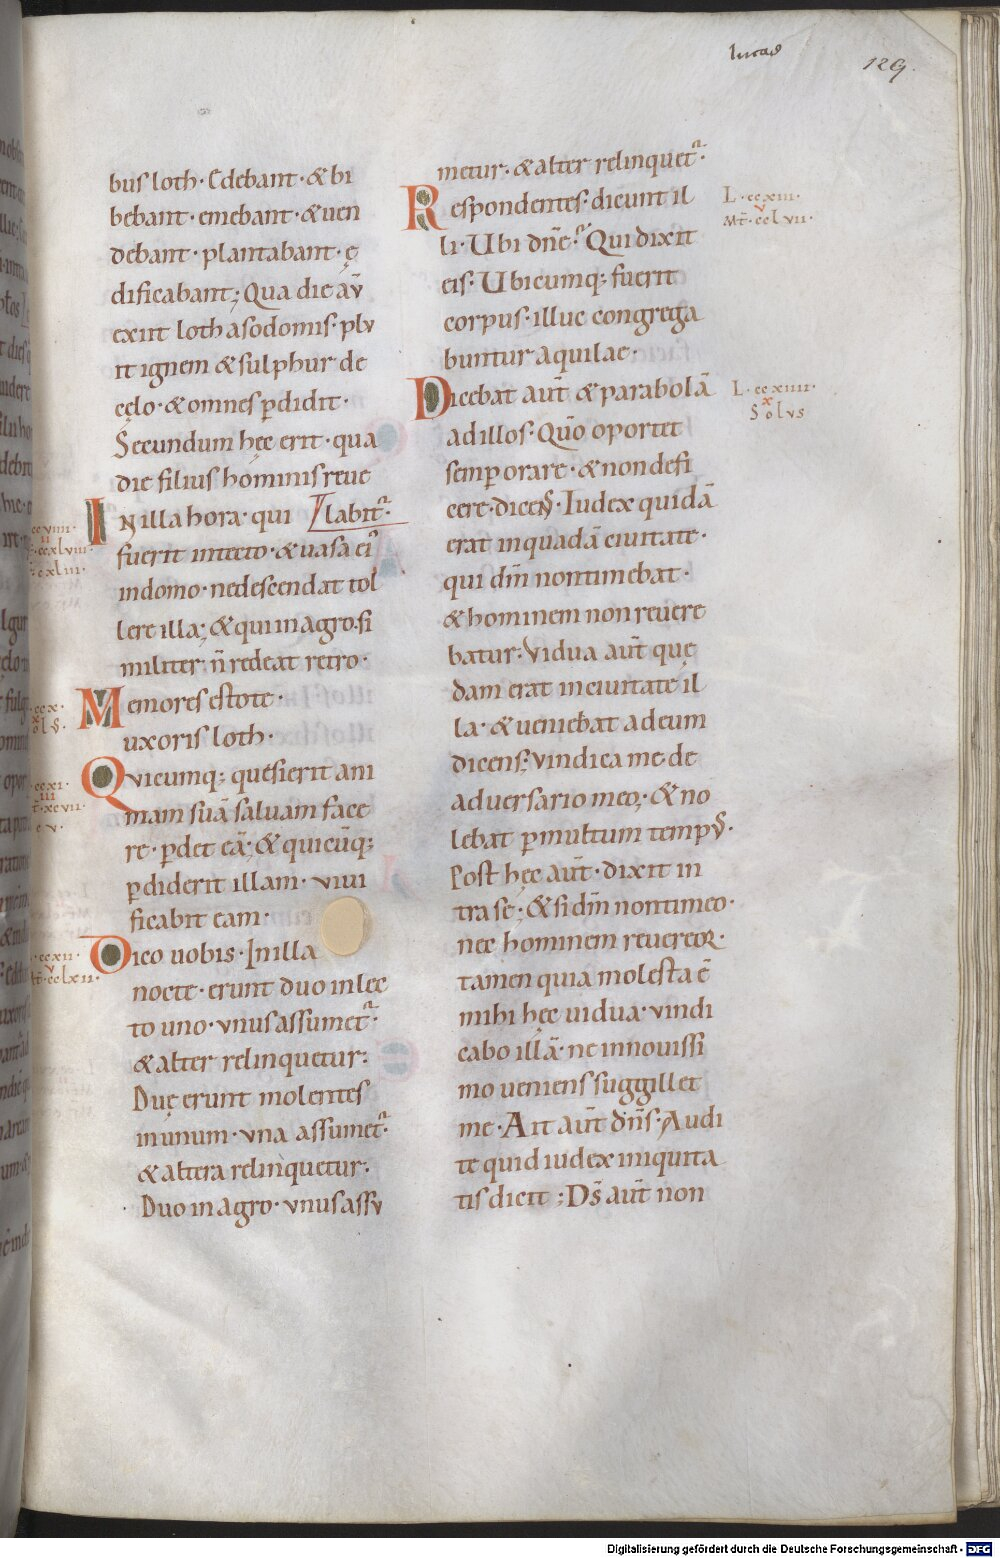 lucas
129.
bus loth· Edebant· & bi
bebant· emebant· & uen
debant· plantabant· ę
dificabant; Qua die aū
exiit loth a sodomis· plu
it ignem & sulphur de
cęlo· & omnes ꝑdidit·
Secundum hęc erit· qua
die filius hominis reue
labit᷑·
In illa hora· qui
fuerit in tecto· & uasa ei᷒
in domo· ne descendat tol
lere illa; & qui in agro· si
militer n̄ redeat retro·
Memores estote·
uxoris loth·
Quicumq; quesierit ani
mam suā saluam face
re· ꝑdet eā; & quicūq;
ꝑdiderit illam· uiui
ficabit eam·
Dico uobis· In illa
nocte· erunt duo in lec
to uno· unus assumet᷑·
& alter relinquetur:
Duę erunt molentes
in unum· una assumet᷑·
& altera relinquetur:
Duo in agro· unus assu
metur· & alter relinquet᷑·
Respondentes· dicunt il
li· Ubi dn̄e? Qui dixit
eis· Ubicumq; fuerit
corpus· illuc congrega
buntur aquilae·
Dicebat aut̄ & parabolā
ad illos· Qūo oportet
semꝑ orare· & non defi
cere· dicens· Iudex quidā
erat in quadā ciuitate·
qui dm̄ non timebat·
& hominem non reuere
batur· Vidua aut̄ quę
dam erat in ciuitate il
la· & ueniebat ad eum
dicens; uindica me de
aduersario meo; & no
lebat ꝑ multum tempus·
Post hęc aut̄· dixit in
tra se; & si dm̄ non timeo·
nec hominem reuereor·
tamen quia molesta ē
mihi hęc uidua· uindi
cabo illā· ne in nouissi
mo ueniens suggillet
me· Ait aut̄ dn̄s· Audi
te quid iudex iniquita
tis dicit; Ds̄ aut̄ non
L· ccxiii·
v
Mt̄· cclvii·
L· ccxiiii·
x
Solus
ccx·
ccxi·
iii
xcvii·
ccxii·
v
Mt̄· cclxii·
Digitalisierung gefördert durch die Deutsche Forschungsgemeinschaft - DFG